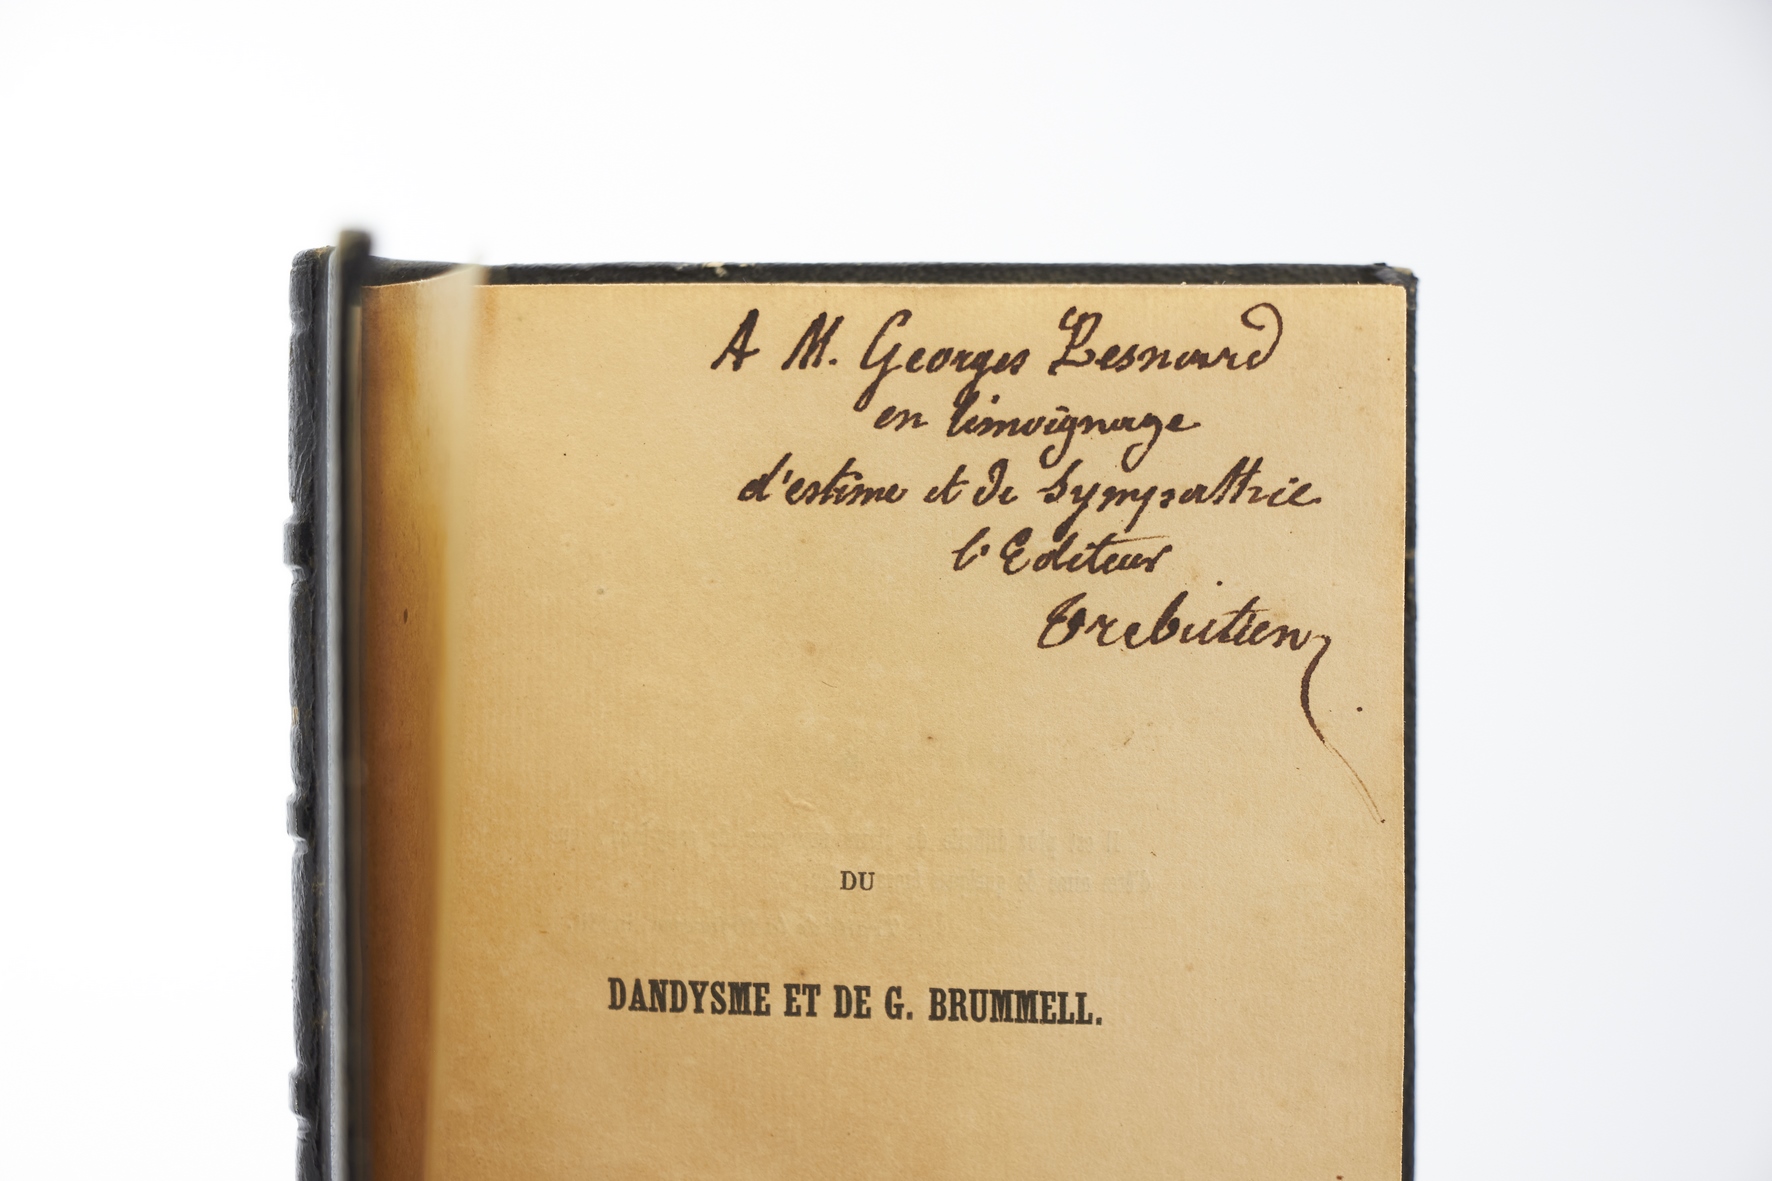 A M. Georges Besnard
en témoignage
d'estime et de Sympathie
l'Editeur
Trebutien
DU
DANDYSME ET DE G. BRUMMELL.